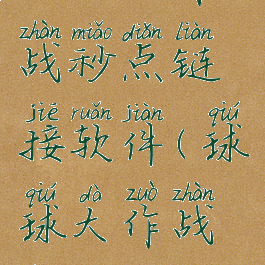 zhàn miǎo diǎn liàn
战秒点链
jiē ruǎn jiàn qiú
接软件(球
qiú dà zuò zhàn
球大作战